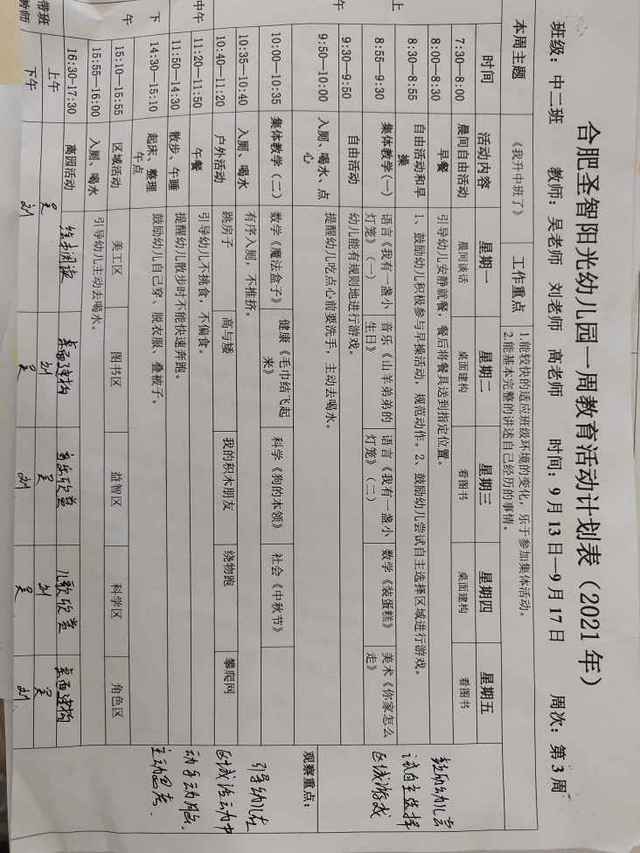 合肥圣智阳光幼儿园一周教育活动计划表（2021 年）
班级：中二班 教师：吴老师 刘老师 高老师 时间：9 月 13 日—9 月 17 日 周次：第 3 周
本周主题 《我升中班了》 工作重点 1.能较快的适应班级环境的变化，乐于参加集体活动。
2.能基本完整的讲述自己经历的事情。
时间 活动内容 星期一 星期二 星期三 星期四 星期五
上
午
7:30—8:00 晨间自由活动 晨间谈话 桌面建构 看图书 桌面建构 看图书
8:00—8:30 早餐 引导幼儿安静就餐，餐后将餐具送到指定位置。
8:30—8:55 自由活动和早操 1、鼓励幼儿积极参与早操活动，规范动作。2、鼓励幼儿尝试自主选择区域进行游戏。
8:55—9:30 集体教学（一） 语言《我有一盏小灯笼》（一） 音乐《山羊弟弟的生日》 语言《我有一盏小灯笼》（二） 数学《装蛋糕》 美术《你家怎么走》
9:30—9:50 自由活动 幼儿能有规则地进行游戏。
9:50—10:00 入厕、喝水、点心 提醒幼儿吃点心前要洗手，主动去喝水。
10:00—10:35 集体教学（二） 数学《魔法盒子》 健康《毛巾结飞起来》 科学《狗的本领》 社会《中秋节》
10:35—10:40 入厕、喝水 有序入厕，不推挤。
10:40—11:20 户外活动 跳房子 高与矮 我的积木朋友 绕物跑 攀爬网
中午
11:20—11:50 午餐 引导幼儿不挑食，不偏食。
11:50—14:30 散步、午睡 提醒幼儿散步时不能快速奔跑。
下
午
14:30—15:10 起床、整理 午点 鼓励幼儿自己穿、脱衣服、叠被子。
15:10—15:55 区域活动 美工区 图书区 益智区 科学区 角色区
15:55—16:00 入厕、喝水 引导幼儿主动去喝水。
16:30—17:30 离园活动 绘本阅读 桌面建构 音乐欣赏 儿歌欣赏 桌面建构
带班
教师
上午 吴 刘 吴 刘 吴
下午 刘 吴 刘 吴 刘
观察重点：
鼓励幼儿尝
试自主选择
区域游戏
引导幼儿在
区域活动中
动手动脑
主动思考.